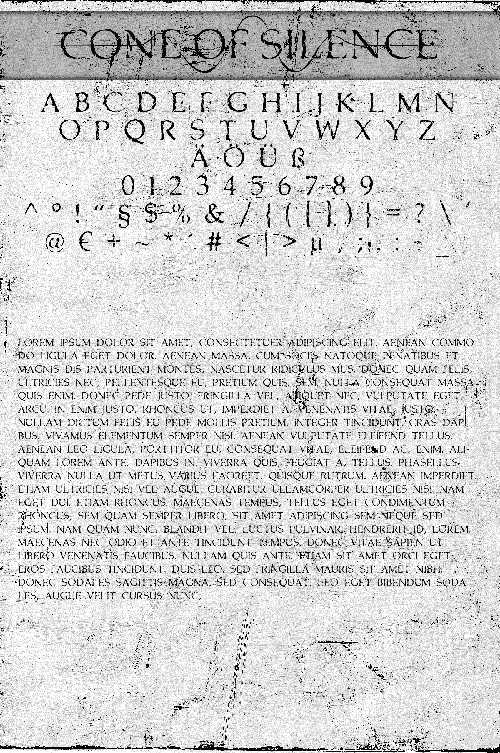 CONE OF SILENCE
A B C D E F G H I J K L M N
O P Q R S T U V W X Y Z
Ä Ö Ü ß
0 1 2 3 4 5 6 7 8 9
^ ° ! “ § $ % & / { ( [ ] ) } = ? \ ´
@ € + ~ * ' # < | > µ , ; . : - _
LOREM IPSUM DOLOR SIT AMET, CONSECTETUER ADIPISCING ELIT. AENEAN COMMO
DO LIGULA EGET DOLOR. AENEAN MASSA. CUM SOCIIS NATOQUE PENATIBUS ET
MAGNIS DIS PARTURIENT MONTES, NASCETUR RIDICULUS MUS. DONEC QUAM FELIS,
ULTRICIES NEC, PELLENTESQUE EU, PRETIUM QUIS, SEM. NULLA CONSEQUAT MASSA
QUIS ENIM. DONEC PEDE JUSTO, FRINGILLA VEL, ALIQUET NEC, VULPUTATE EGET,
ARCU. IN ENIM JUSTO, RHONCUS UT, IMPERDIET A, VENENATIS VITAE, JUSTO.
NULLAM DICTUM FELIS EU PEDE MOLLIS PRETIUM. INTEGER TINCIDUNT. CRAS DAPI
BUS. VIVAMUS ELEMENTUM SEMPER NISI. AENEAN VULPUTATE ELEIFEND TELLUS.
AENEAN LEO LIGULA, PORTTITOR EU, CONSEQUAT VITAE, ELEIFEND AC, ENIM. ALI-
QUAM LOREM ANTE, DAPIBUS IN, VIVERRA QUIS, FEUGIAT A, TELLUS. PHASELLUS
VIVERRA NULLA UT METUS VARIUS LAOREET. QUISQUE RUTRUM. AENEAN IMPERDIET.
ETIAM ULTRICIES NISI VEL AUGUE. CURABITUR ULLAMCORPER ULTRICIES NISI. NAM
EGET DUI. ETIAM RHONCUS. MAECENAS TEMPUS, TELLUS EGET CONDIMENTUM
RHONCUS, SEM QUAM SEMPER LIBERO, SIT AMET ADIPISCING SEM NEQUE SED
IPSUM. NAM QUAM NUNC, BLANDIT VEL, LUCTUS PULVINAR, HENDRERIT ID, LOREM.
MAECENAS NEC ODIO ET ANTE TINCIDUNT TEMPUS. DONEC VITAE SAPIEN UT
LIBERO VENENATIS FAUCIBUS. NULLAM QUIS ANTE. ETIAM SIT AMET ORCI EGET
EROS FAUCIBUS TINCIDUNT. DUIS LEO. SED FRINGILLA MAURIS SIT AMET NIBH.
DONEC SODALES SAGITTIS MAGNA. SED CONSEQUAT, LEO EGET BIBENDUM SODA
LES, AUGUE VELIT CURSUS NUNC,